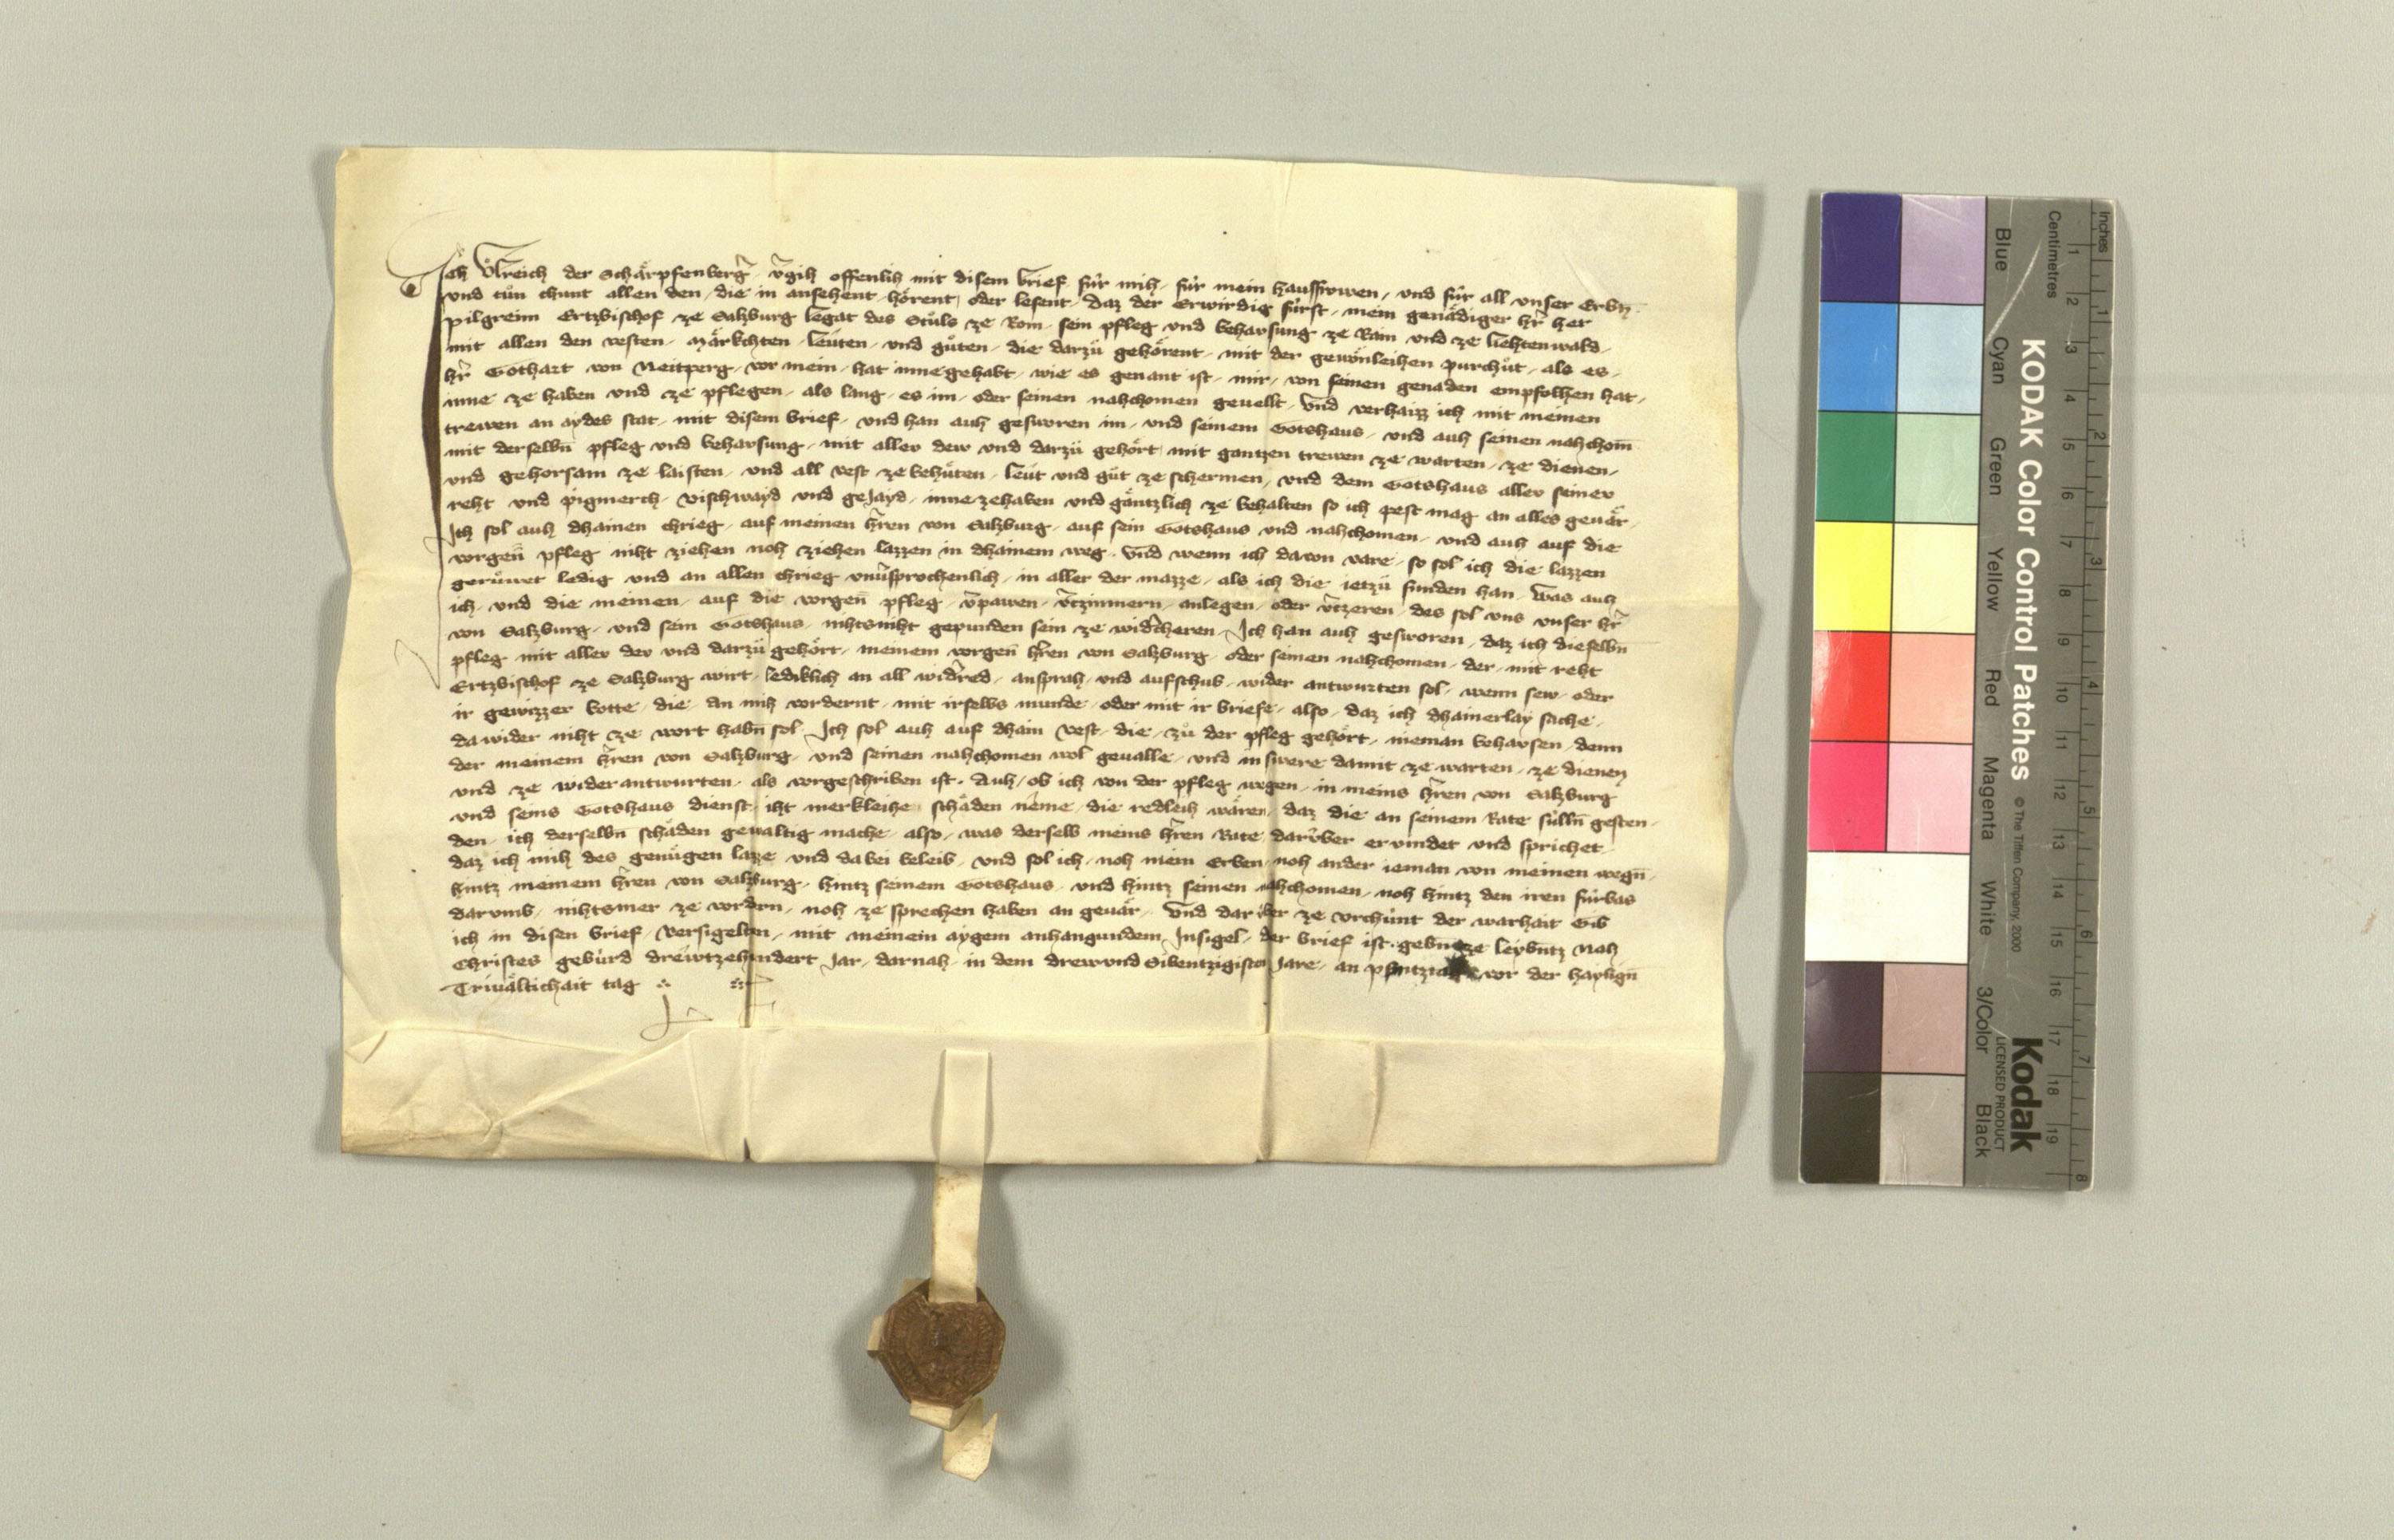 Ich Ůlreich der Schaͤrpfenberg̃ v̄gih offenlich mit disem brief fuͤr mih, fuͤr mein hausfrowen, und fuͤr all unser Erbn̄
und tuͦn chunt allen den, die in ansehent, hoͤrent, oder lesent, daz der Erwirdig fuͤrst, mein genaͤdiger hr̃ her
Pilgreim Ertzbischof ze Salzburg legat des Stuͦls ze Rom, sein pfleg und behausung ze Rain und ze liehtenwald,
mit allen den vesten, Maͤrkchten, leuͤten, und guͤten, die darzuͦ gehoͤrent, mit der gewoͤnleihen purchuͦt, als es,
hr̃ Gothart von Neitperg, vor mein, hat innegehabt, wie es genant ist, mir, von seinen genaden empfolhen hat,
inne ze haben und ze pflegen, als lang, es im, oder seinen nahchomen geuellt, Und verhaizz ich mit meinen
trewen an aydes stat, mit disem brief, und han auh gesworen im, und seinem Gotshaus, und auh seinen nahchom̄
mit derselbn̄ pfleg und behausung, mit aller dew und darzuͦ gehoͤrt, mit gantzen trewen ze warten, ze dienen,
und gehorsam ze laisten, und all vest ze behuͤten, leuͤt und guͦt ze schermen, und dem Gotshaus aller seiner
reht und pigmerch, vischwayd und gejayd, inne zehaben und gaͤntzlich ze behalten so ich pest mag an alles geuaͤr,
Ich sol auh dhainen chrieg, auf meinen hr̄en von Salzburg, auf sein Gotshaus und nahchomen, und auh auf die
vorgen̄ pfleg niht ziehen noh ziehen lazzen in dhainem weg, Und wenn ich dauon vare, so sol ich die lazzen
geruͦwet ledig und an allen chrieg unv̄sprochenlich, in aller der mazze, als ich die ietzu funden han, Was auh
ich, und die meinen, auf die vorgen̄ pfleg, v̄pawen, v̄tzimmern, anlegen, oder v̄tzeren, des sol uns unser hr̃
von Salzburg, und sein Gotshaus, nihtsniht gepunden sein ze widc̄heren, Ich han auh gesworen, daz ich dieselbn̄
pfleg mit aller der und darzuͦ gehoͤrt, meinem vorgen̄ hr̄en von Salzburg, oder seinen nahchomen, der, mit reht
Ertzbischof ze Salzburg wirt, lediklich an all widr̄red, ansprah, und aufschub, wider antwurten sol, wenn sew, oder
ir gewizzer botte, die, an mih vordernt, mit irselbs munde, oder mit ir briefe, also, daz ich dhainerlay sache,
dawider niht ze wort habn̄ sol, Ich sol auh auf dhain vest, die, zuͦ der pfleg gehoͤrt, nieman behausen, denn
der meinem hr̄en von Salzburg, und seinen nahchomen wol geualle, und in swere damit ze warten, ze dienen
und ze widerantwurten, als vorgeschriben ist, Auh, ob ich von der pfleg wegen, in meins hr̄en von Salzburg
und seins Gotshaus dienst, iht merkleihe schaͤden neme, die redleih waͤren, daz die an seinem Rate sulln̄ gesten,
den, ich derselbn̄ schaͤden gewaltig mache, also, was derselb meins hr̄en Rate, daruͤber eruindet und sprichet,
daz ich mih des genuͤgen lazze und dabei beleib, und sol ich, noh mein Erben, noh ander ieman von meinen wegn̄,
hintz meinem hr̄en von Salzburg, hintz seinem Gotshaus, und hintz seinen nahchomen, noh hintz den iren fuͤrbas
darumb, nihtsmer ze vordern, noh ze sprechen haben an geuaͤr, Und daruber ze urchuͤnt der warhait Gib
ich in disen brief, versigelten, mit meinem aygem anhangundem Insigel, der brief ist, gebn̄ ze leybntz Nah
Christes gebuͤrd dreuͤtzehundert Jar, darnah, in dem drewundsibentzigisten Jare, an Phintztag vor der haylign̄
Triuaͤltichait tag
KODAK Color Control Patches © The Tiffen Company, 2000 Kodak LICENSED PRODUCT
Blue Cyan Green Yellow Red Magenta White 3/Color Black
Inches 1 2 3 4 5 6 7 8
Centimetres 1 2 3 4 5 6 7 8 9 10 11 12 13 14 15 16 17 18 19